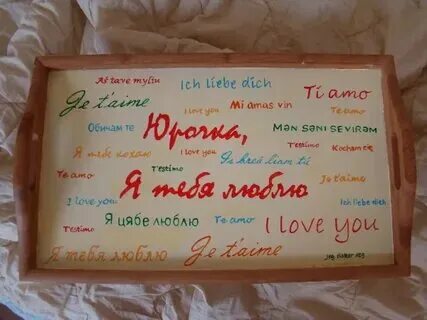 Aš tave myliu
Ich liebe dich
Ti amo
Je t'aime
I love you
Mi amas vin
Te amo
Обичам те
Юрочка,
MƏN SƏNI SEVIRƏM
Я тебе кохаю
I love you
T'estimo
Kocham cię
Is breá liom tú
Te amo
T'estimo
Я тебя люблю
Je t'aime
I love you
Ich liebe dich
Я цябе люблю
Te amo
I love you
T'estimo
Я тебя люблю
Je t'aime